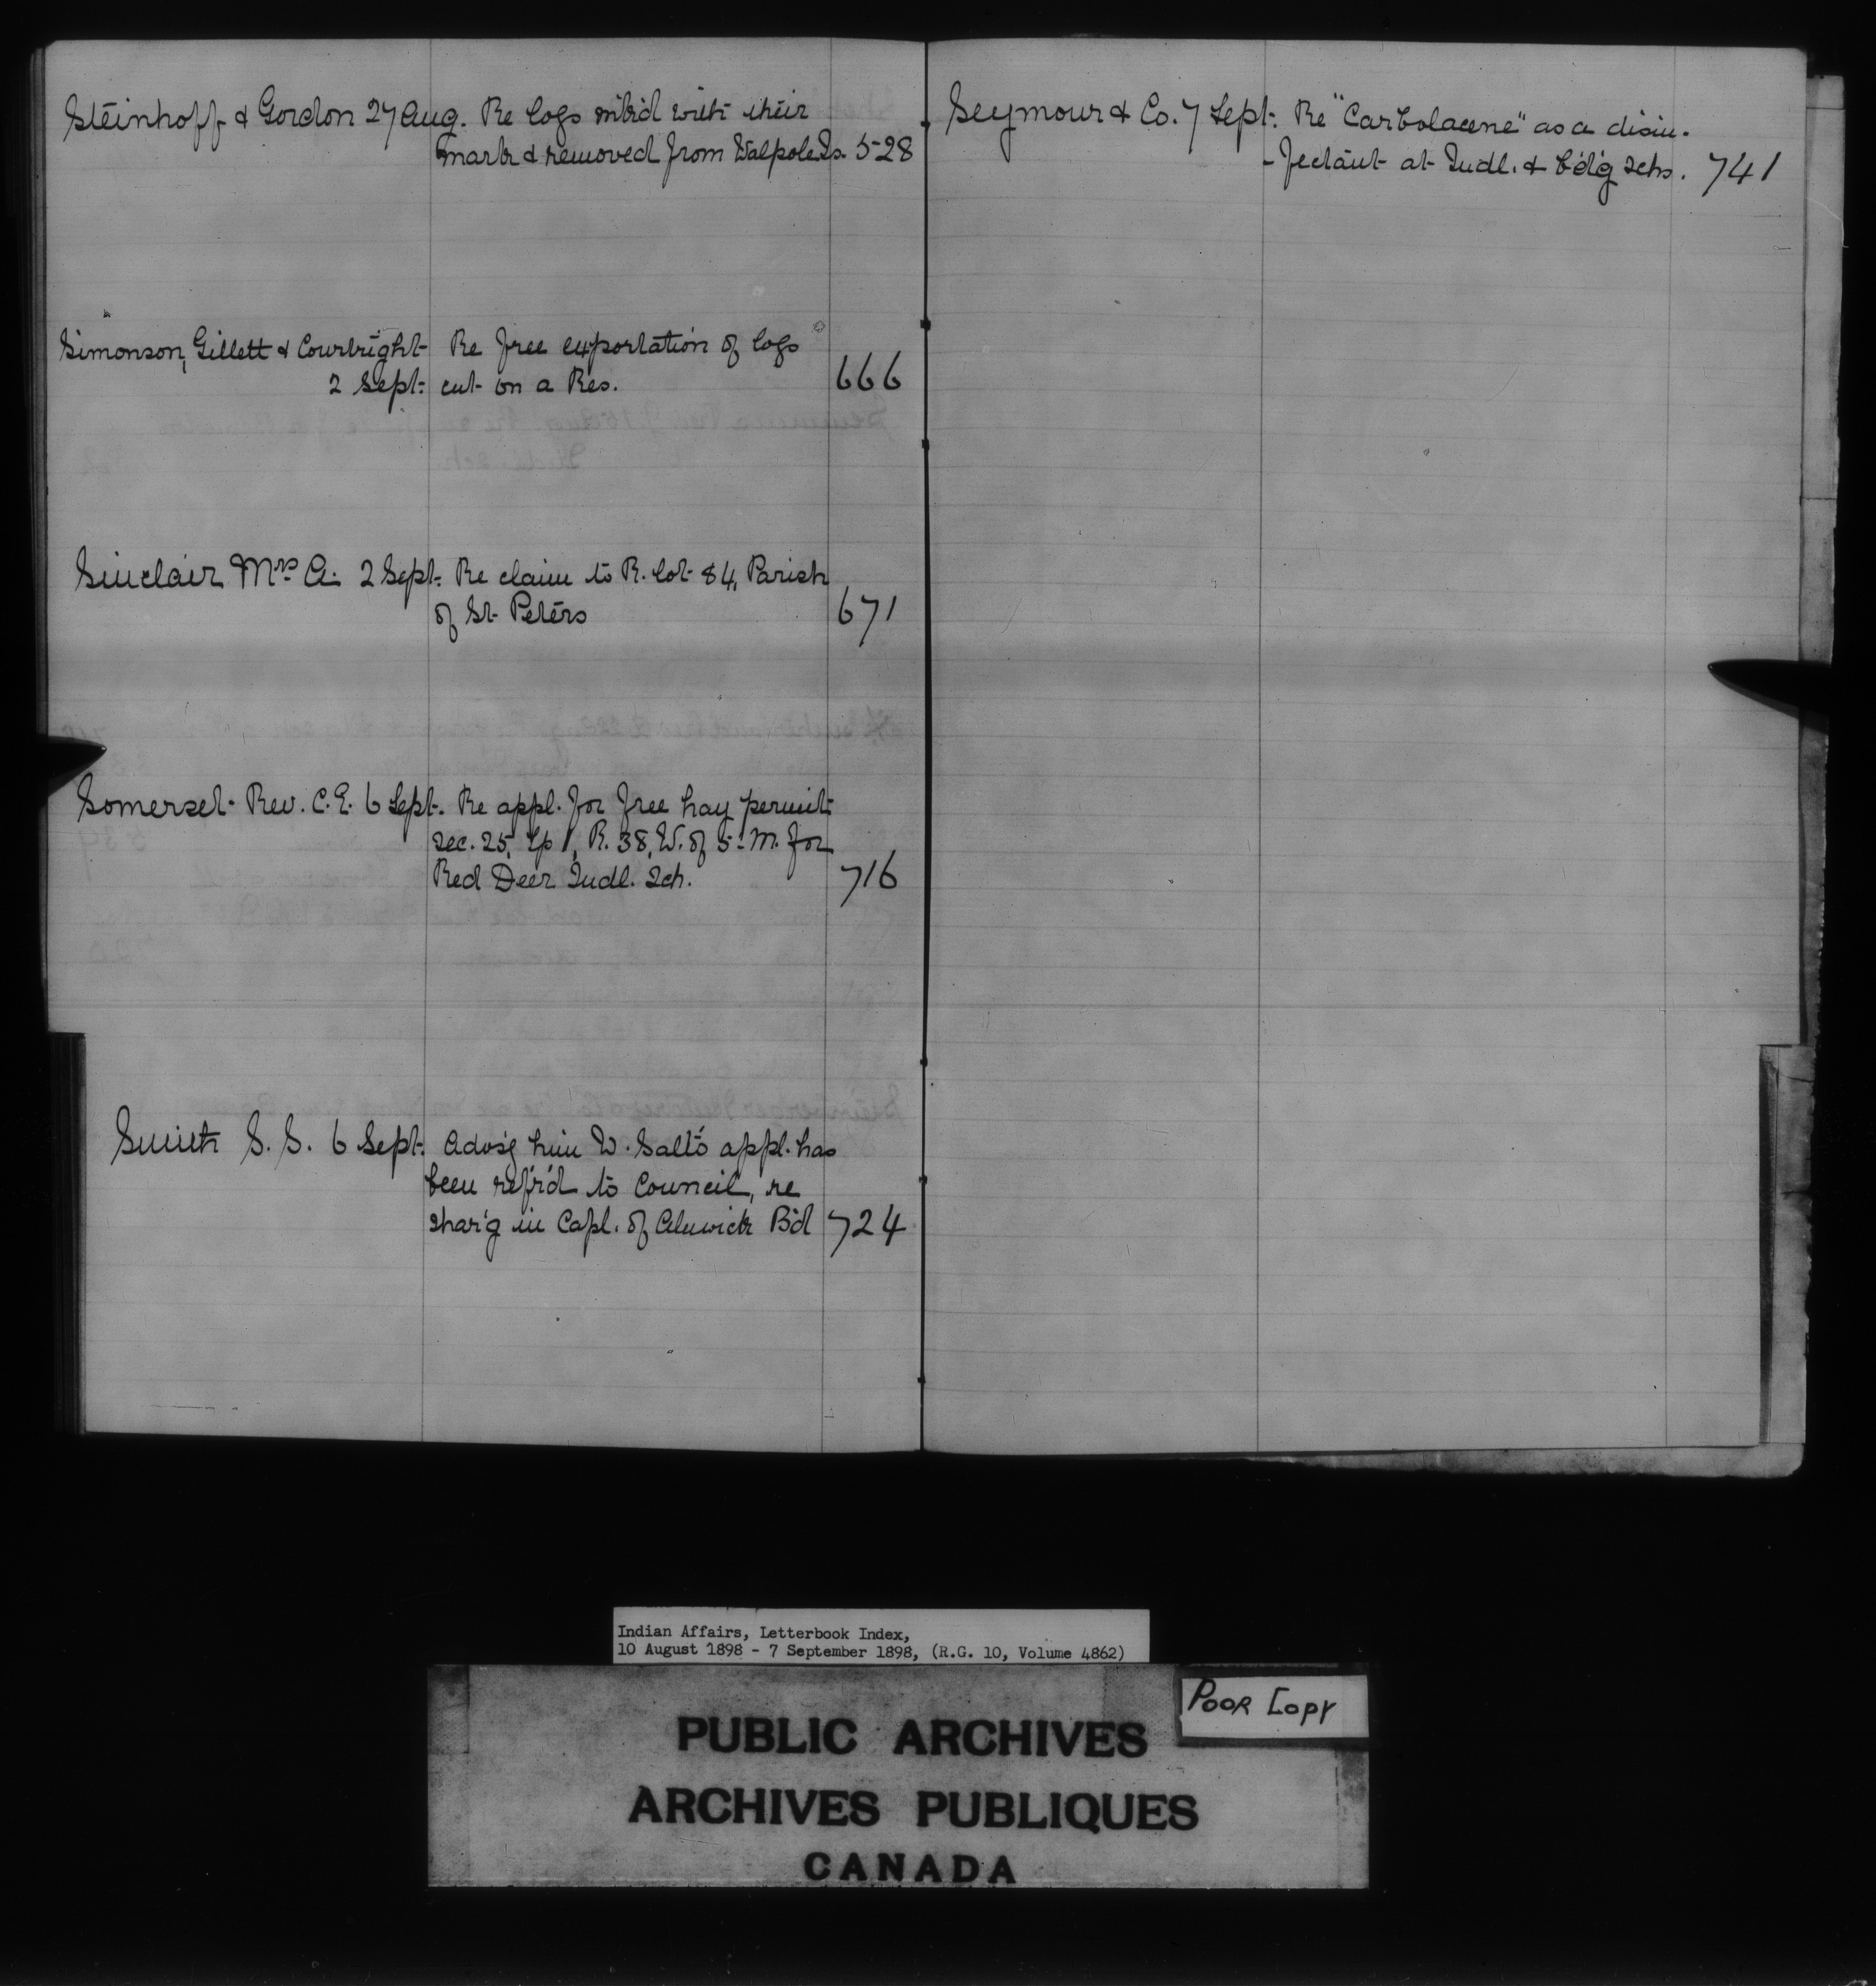 Steinhoff & Gordon 27 Aug. Re logs m'k'd with their
mark & removed from Walpole Is. 528
Simonson, Gillett & Courtright Re free exportation of logs
2 Sept. cut on a Res. 666
Sinclair Mrs A. 2 Sept. Re claim to R. lot 84, Parish
of St. Peters 671
Somerset Rev. C.E. 6 Sept. Re appl. for free hay permit
sec. 25, Tp 1, R. 38, W. of 5 M. for
Red Deer Indl. Sch. 716
Smith S. S. 6 Sept. Advs'g him W. Salt's appl. has
been ref'r'd to Council, re
shar'g in Capl. of Alnwick B'd 724
Seymour & Co. 7 Sept. Re "Carbolacene" as a disin-
-fectant at Indl. & b'd'g schs. 741
Indian Affairs, Letterbook Index,
10 August 1898 - 7 September 1898, (R.G. 10, Volume 4862)
POOR COPY
PUBLIC ARCHIVES
ARCHIVES PUBLIQUES
CANADA